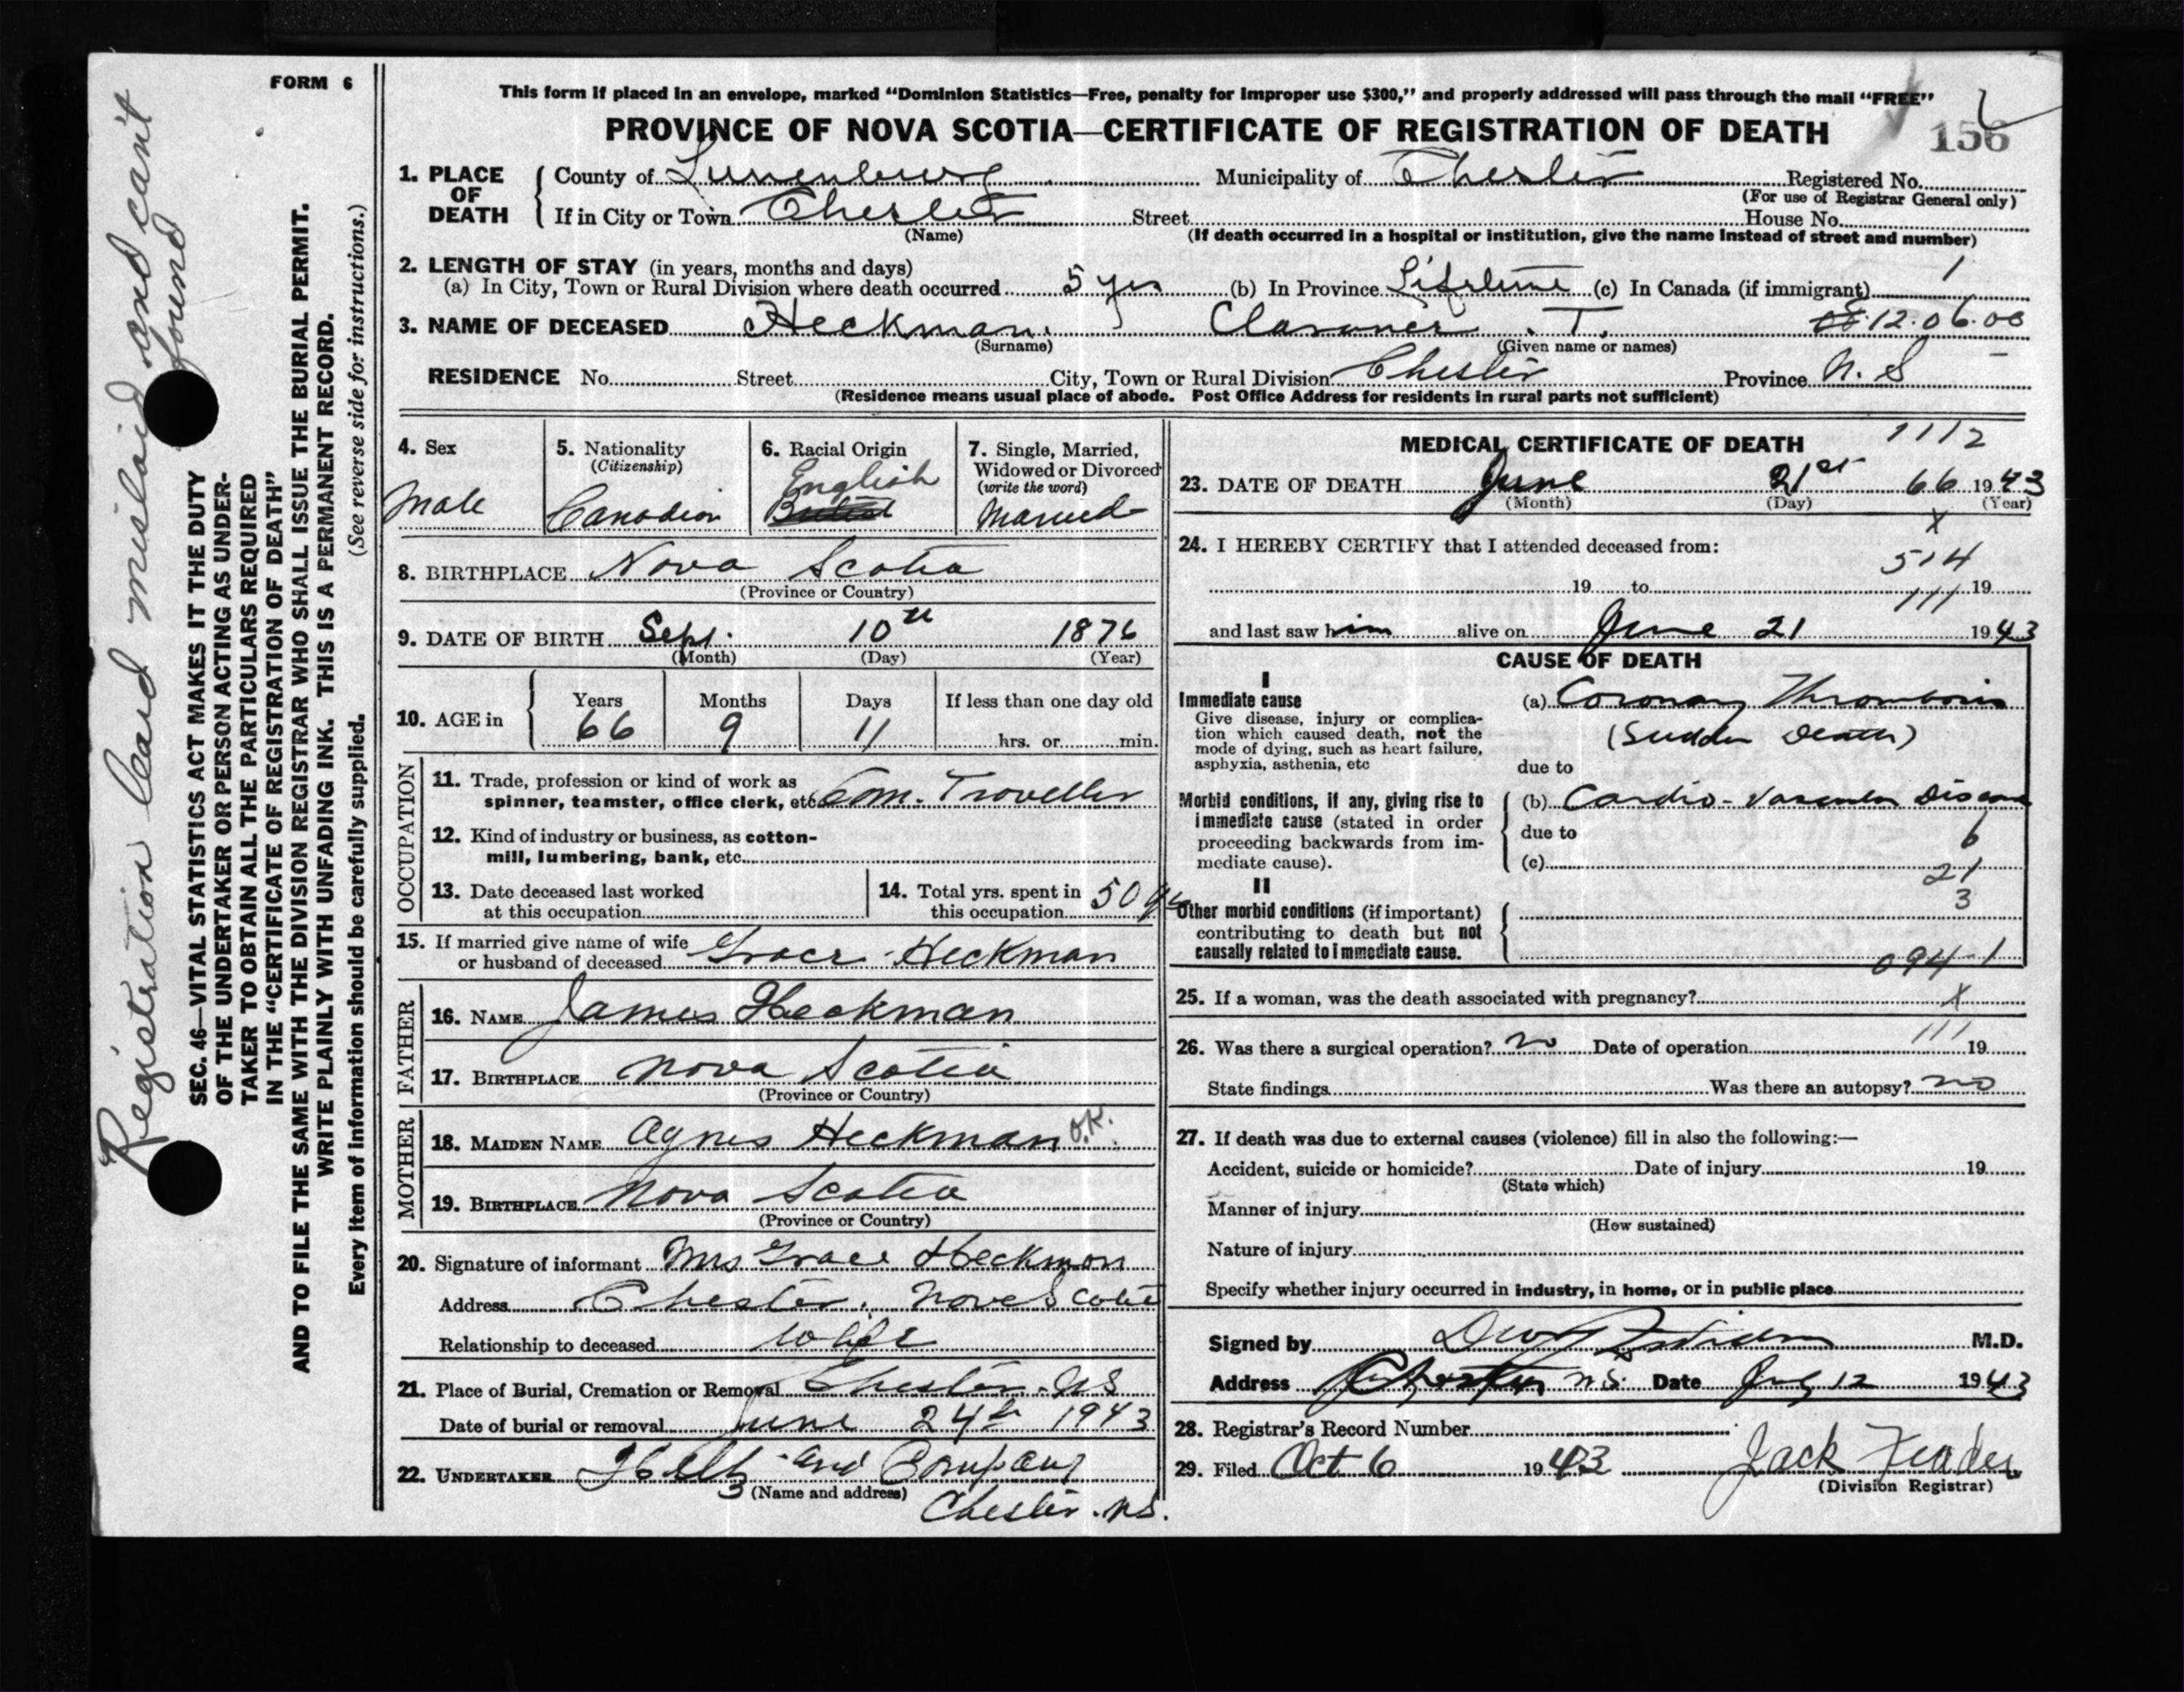 FORM 6
This form if placed in an envelope, marked “Dominion Statistics—Free, penalty for improper use $300,” and properly addressed will pass through the mail “FREE”
PROVINCE OF NOVA SCOTIA—CERTIFICATE OF REGISTRATION OF DEATH
156
1. PLACE OF DEATH
County of Lunenburg Municipality of Chester Registered No.
(For use of Registrar General only)
If in City or Town Chester Street House No.
(Name) (If death occurred in a hospital or institution, give the name instead of street and number)
2. LENGTH OF STAY (in years, months and days)
(a) In City, Town or Rural Division where death occurred 5 yrs (b) In Province Lifetime (c) In Canada (if immigrant) 1
3. NAME OF DECEASED Heckman. T. 12.06.00
(Surname) (Given name or names)
RESIDENCE No. Street City, Town or Rural Division Chester Province N. S
(Residence means usual place of abode. Post Office Address for residents in rural parts not sufficient)
4. Sex
Male
5. Nationality
(Citizenship)
Canadian
6. Racial Origin
English
7. Single, Married, Widowed or Divorced
(write the word)
Married
8. BIRTHPLACE Nova Scotia
(Province or Country)
9. DATE OF BIRTH Sept. 10th 1876
(Month) (Day) (Year)
10. AGE in
Years Months Days If less than one day old
66 9 11 hrs. or min.
OCCUPATION
11. Trade, profession or kind of work as
spinner, teamster, office clerk, etc. Com. Traveller
12. Kind of industry or business, as cotton-
mill, lumbering, bank, etc.
13. Date deceased last worked
at this occupation
14. Total yrs. spent in
this occupation 50 yrs
15. If married give name of wife
or husband of deceased Grace Heckman
FATHER
16. NAME James Heckman
17. BIRTHPLACE Nova Scotia
(Province or Country)
MOTHER
18. MAIDEN NAME Agnes Heckman O.K.
19. BIRTHPLACE Nova Scotia
(Province or Country)
20. Signature of informant Mrs Grace Heckman
Address Chester, Nova Scotia
Relationship to deceased Wife
21. Place of Burial, Cremation or Removal Chester. NS
Date of burial or removal June 24th 1943
22. UNDERTAKER and Company
(Name and address)
Chester. NS.
MEDICAL CERTIFICATE OF DEATH 1112
23. DATE OF DEATH June 21st 66 1943
(Month) (Day) (Year)
X
24. I HEREBY CERTIFY that I attended deceased from:
514
19 to 111 19
and last saw him alive on June 21 1943
CAUSE OF DEATH
I
Immediate cause
Give disease, injury or complica-
tion which caused death, not the
mode of dying, such as heart failure,
asphyxia, asthenia, etc
(a) Coronary Thrombosis
(Sudden Death)
due to
Morbid conditions, if any, giving rise to
immediate cause (stated in order
proceeding backwards from im-
mediate cause).
(b) Cardio-Vascular Disease
due to
6
(c)
21
3
II
Other morbid conditions (if important)
contributing to death but not
causally related to immediate cause.
094-1
25. If a woman, was the death associated with pregnancy? X
26. Was there a surgical operation? no Date of operation 111 19
State findings Was there an autopsy? no
27. If death was due to external causes (violence) fill in also the following:—
Accident, suicide or homicide? Date of injury 19
(State which)
Manner of injury
(How sustained)
Nature of injury
Specify whether injury occurred in industry, in home, or in public place
Signed by M.D.
Address N.S. Date July 12 1943
28. Registrar's Record Number
29. Filed Oct 6 1943 Jack
(Division Registrar)
Registration card mislaid and can't
found
SEC. 46—VITAL STATISTICS ACT MAKES IT THE DUTY
OF THE UNDERTAKER OR PERSON ACTING AS UNDER-
TAKER TO OBTAIN ALL THE PARTICULARS REQUIRED
IN THE “CERTIFICATE OF REGISTRATION OF DEATH”
AND TO FILE THE SAME WITH THE DIVISION REGISTRAR WHO SHALL ISSUE THE BURIAL PERMIT.
WRITE PLAINLY WITH UNFADING INK. THIS IS A PERMANENT RECORD.
Every item of information should be carefully supplied. (See reverse side for instructions.)